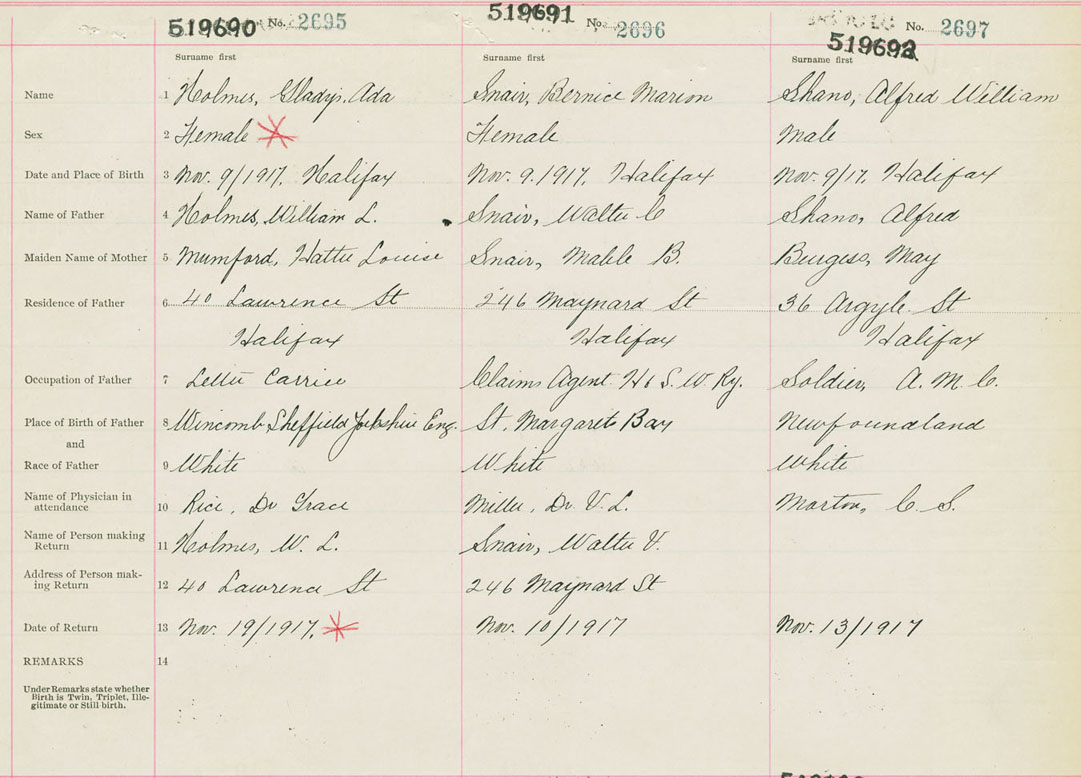 519690 No. 2695 519691 No. 2696 No. 2697
519692
Surname first Surname first Surname first
Name 1 Holmes, Gladys Ada Snair, Bernice Marion Shano, Alfred William
Sex 2 Female Female Male
Date and Place of Birth 3 Nov. 9/1917, Halifax Nov. 9.1917, Halifax Nov. 9/17, Halifax
Name of Father 4 Holmes, William L. Snair, Walter Shano, Alfred
Maiden Name of Mother 5 Mumford, Hattie Louise Snair, Mable B. Burgess, May
Residence of Father 6 40 Lawrence St 246 Maynard St 36 Argyle St
Halifax Halifax Halifax
Occupation of Father 7 Letter Carrier Claims Agent H & S. W Ry. Soldier, A. M. C.
Place of Birth of Father 8 Wincomb Sheffield Yorkshire Eng. St. Margarets Bay Newfoundland
and
Race of Father 9 White White White
Name of Physician in
attendance 10 Rice, Dr Grace Miller, Dr. V. L. Morton, C. S.
Name of Person making
Return 11 Holmes, W. L. Snair, Walter V.
Address of Person mak-
ing Return 12 40 Lawrence St 246 Maynard St
Date of Return 13 Nov. 19/1917, Nov. 10/1917 Nov. 13/1917
REMARKS 14
Under Remarks state whether
Birth is Twin, Triplet, Ille-
gitimate or Still birth.